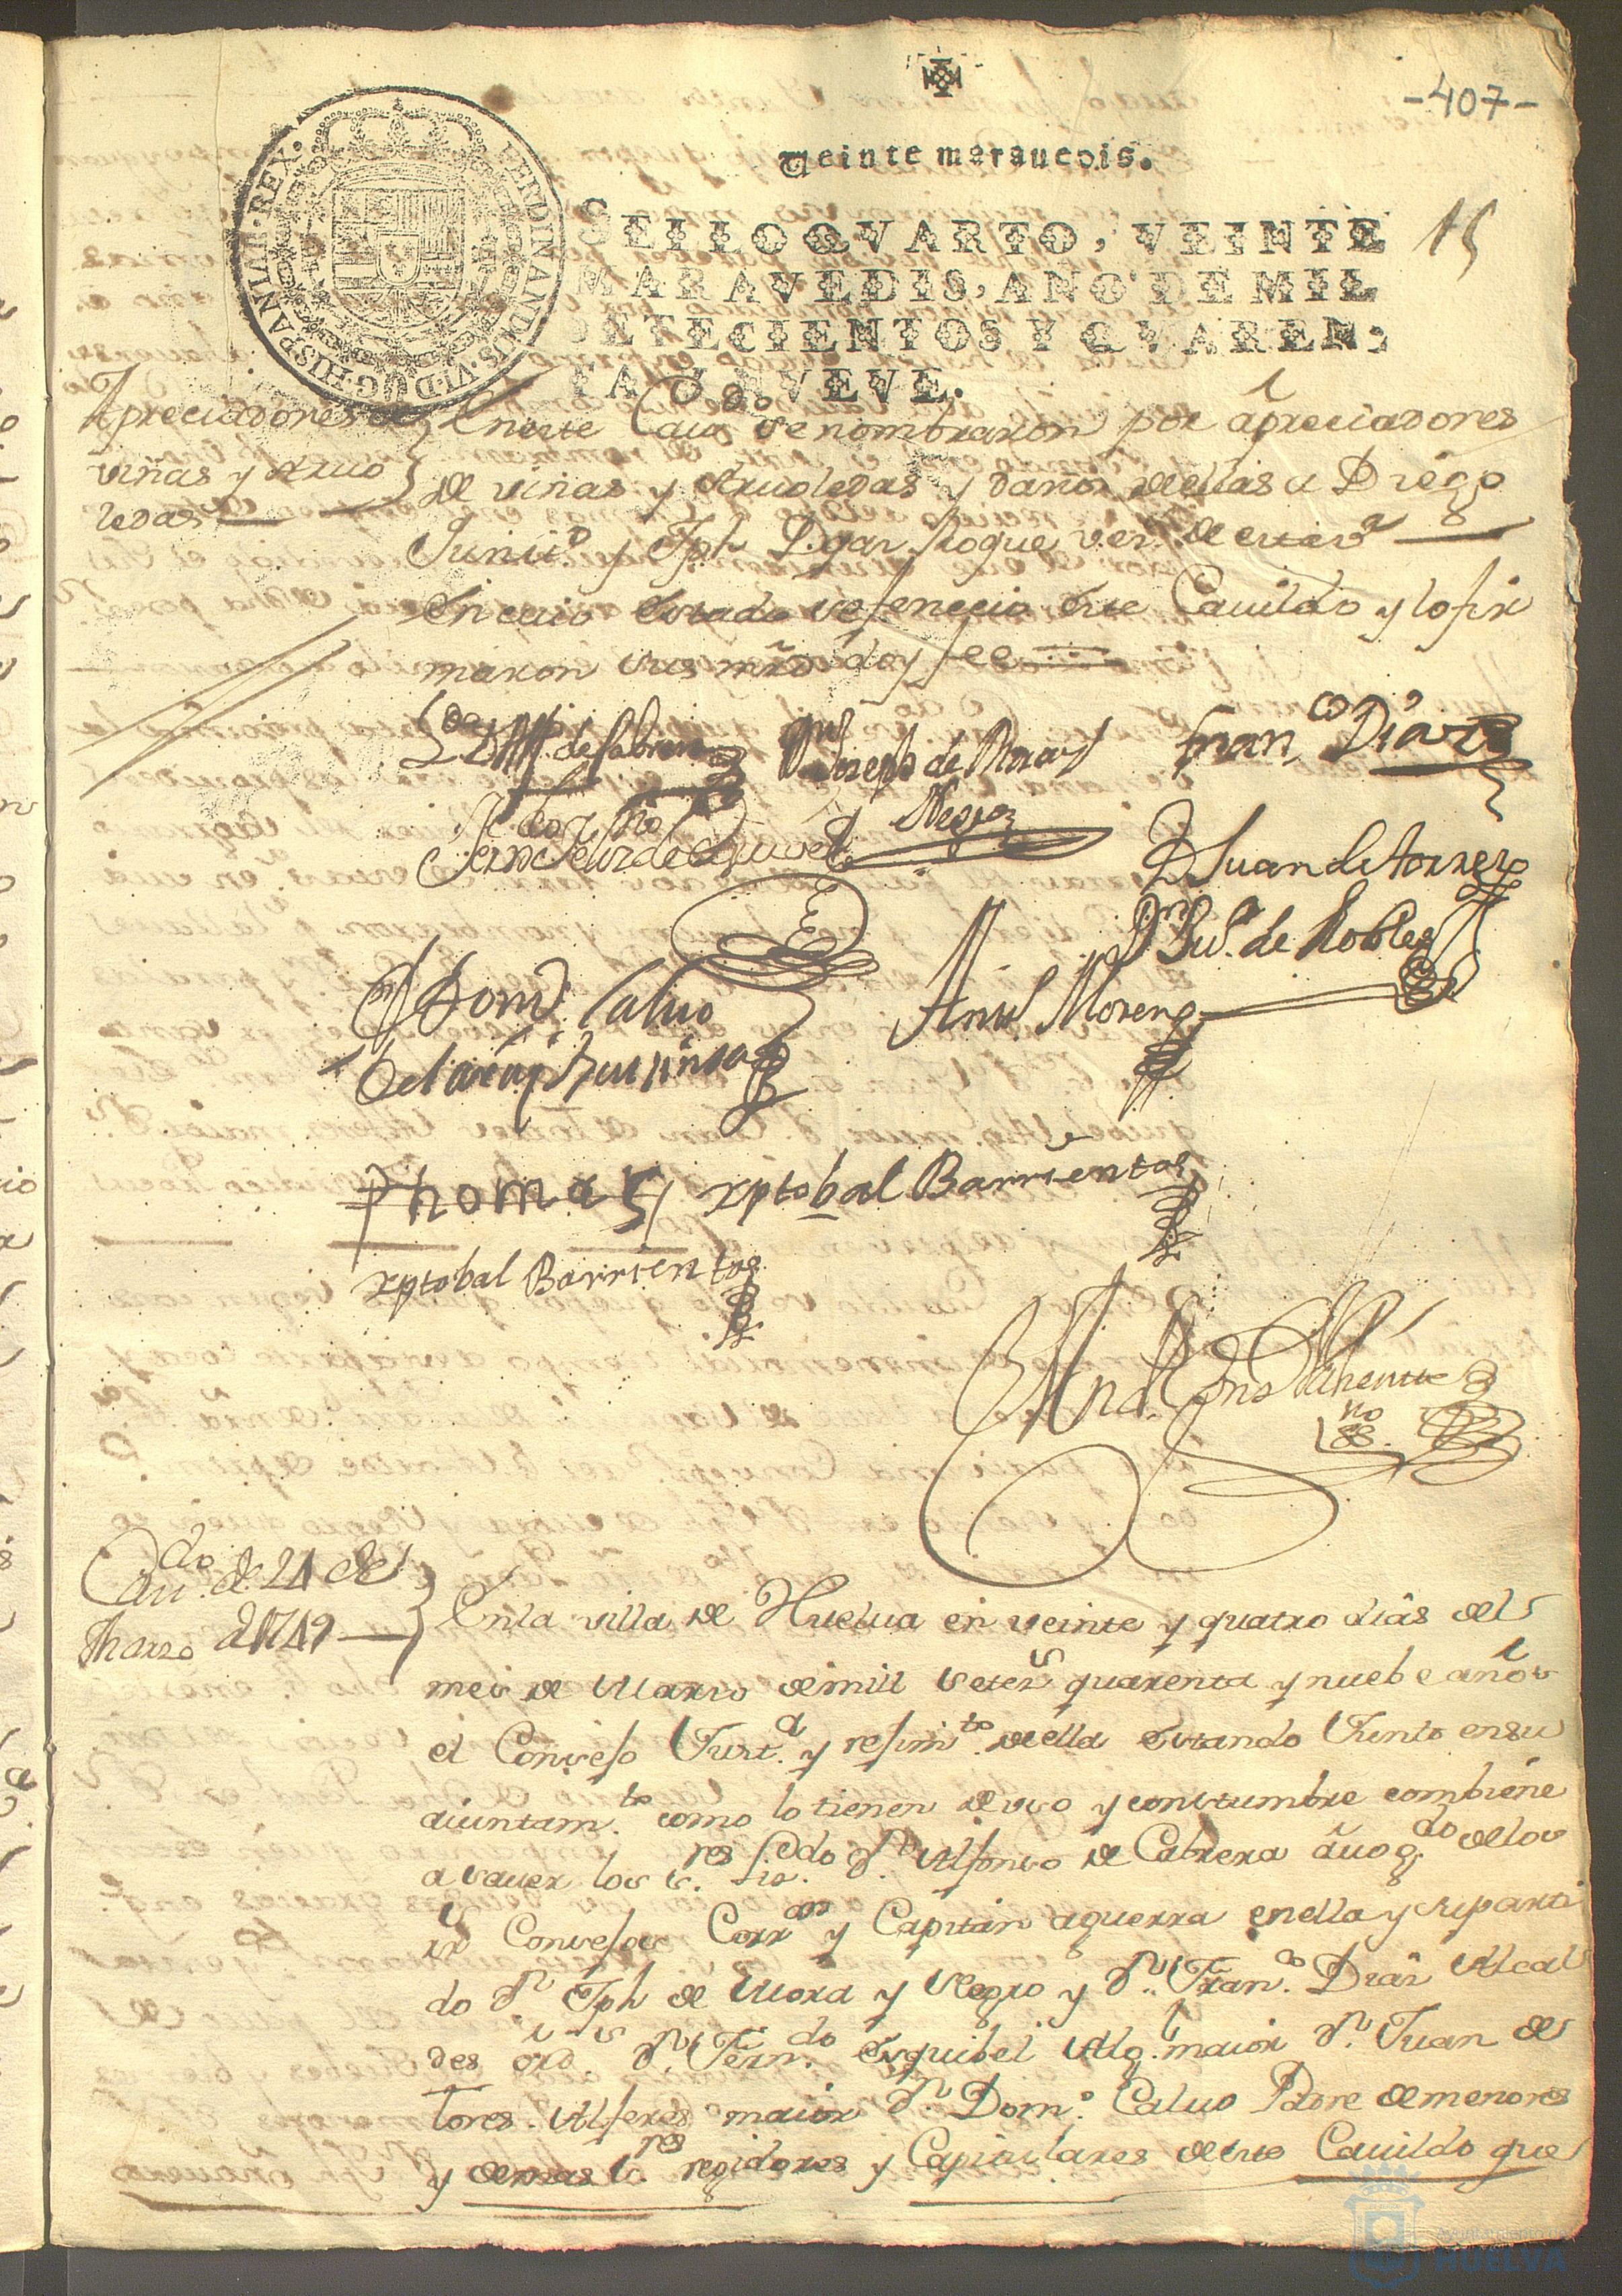 -407-
Veinte maravedis.
SELLO QVARTO, VEINTE
MARAVEDIS, AÑO DE MIL
SETECIENTOS Y QVAREN-
TA Y NVEVE.
15
FERDINANDUS·VI·D·G·HISPANIAR·REX·
Apreciadores de
viñas y Aruo
ledas
En este Cauᵈᵒ se nombraron por apreciadores
de viñas y Aruoledas y daños de ellas a Diego
y Jph Roque vezˢ de esta vᵃ
En cuio estado se fenecio este Cauildo y lo fir
maron sus mrds doy fee
Lᵈᵒ Dⁿ Alf. de Cabrera
Dⁿ Joseph de Mora y
Negro
Franᶜᵒ Diaz
Fernᵈᵒ de Esquivel
D Juan de Torres
Dⁿ Juⁿ. de Robles
Dⁿ Domº Caluo
Antº Moreno
Thomas
xptobal Barrientos
xptobal Barrientos
Cauᵈᵒ de 24 de
Marzo d 1749
En la villa de Huelua en veinte y quatro dias del
mes de Marzo de mill setesˢ quarenta y nuebe años
el Consejo Justᵃ y rejimᵗᵒ de ella estando Junto en su
aiuntamᵗᵒ como lo tienen de uso y constumbre combiene
a sauer los sʳᵉˢ Lizᵈᵒ dⁿ Alfonso de Cabrera auogᵈᵒ de los
rˢ Consejos Corrᵒʳ y Capitan a guerra en ella y su parti
do dⁿ Jph de Mora y Negro y dⁿ Franᶜᵒ Diaz Alcal
des ordˢ dⁿ Fernᵈᵒ Esquibel Algˡ maior dⁿ Juan de
Tores Alferes maior dⁿ Domº Caluo Padre de menores
y demas sʳᵉˢ regidores y Capitulares de este Cauildo que
HUELVA